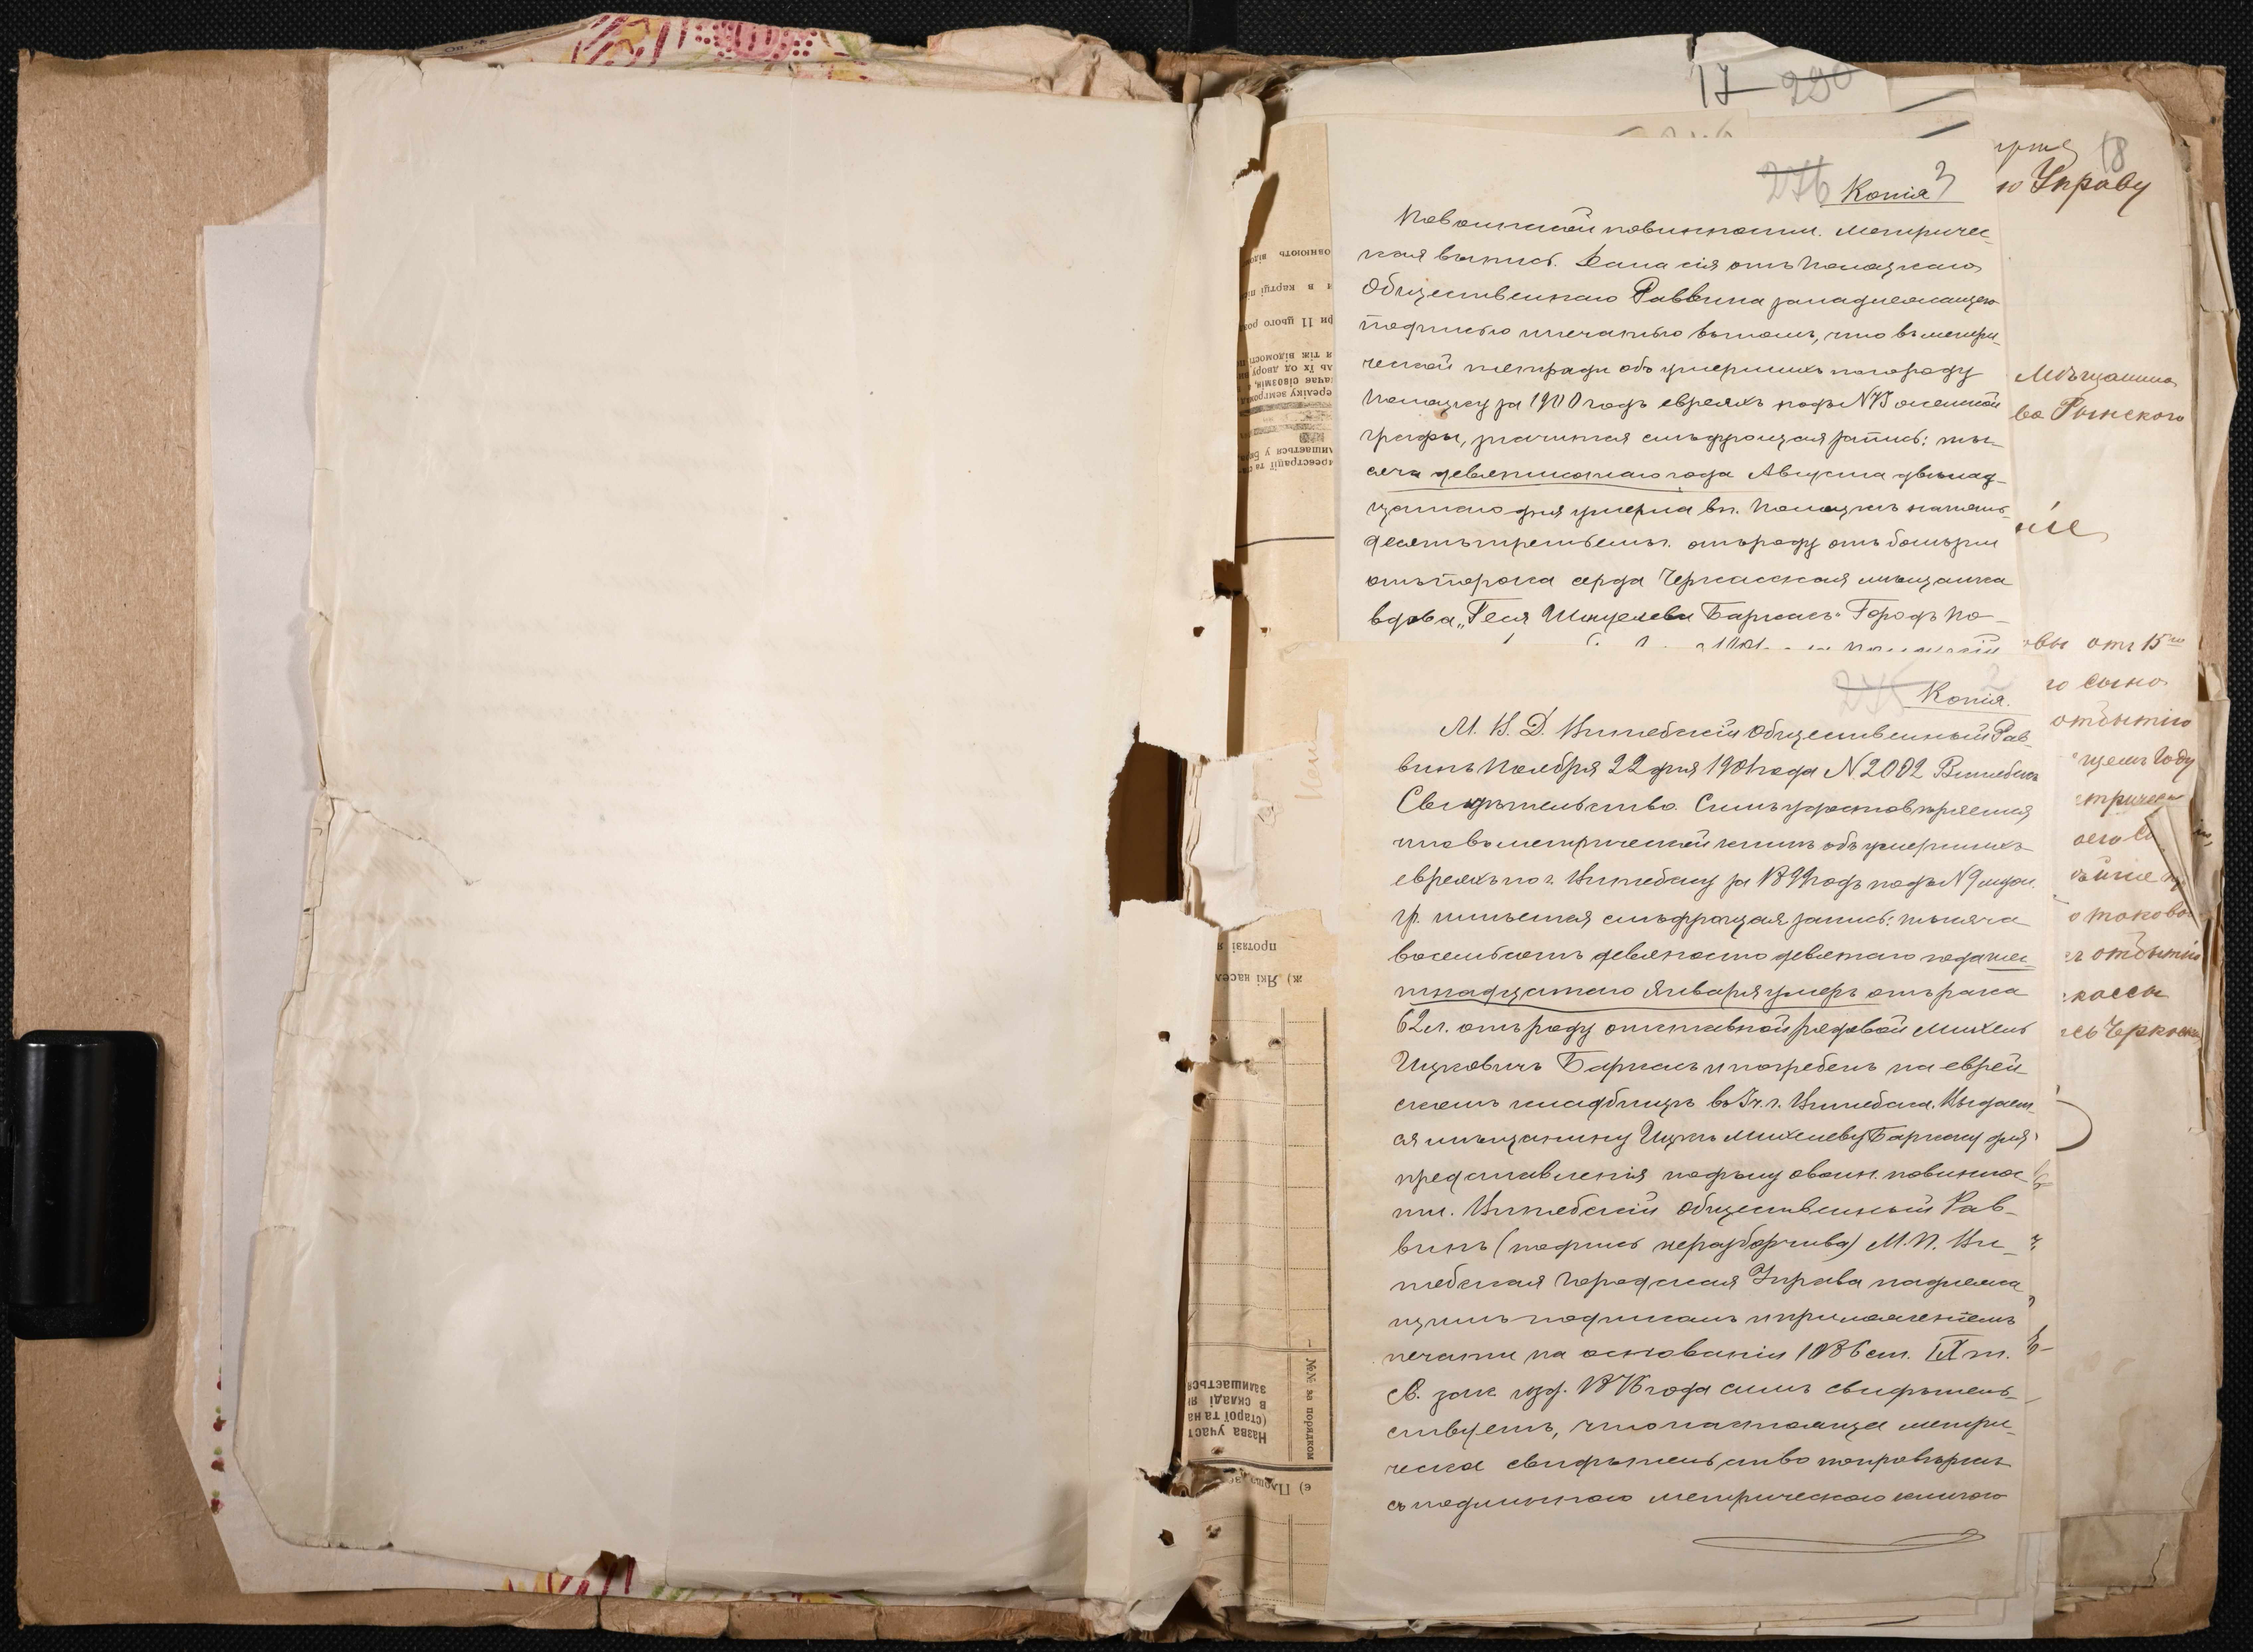 17 290
276 Копія 3
По воинской повинности. Метричес-
кая выпись. Дана сія отъ Полоцкаго
Общественнаго Раввина за надлежащею
подписью и печатью въ томъ, что въ метри-
ческой тетради объ умершихъ по городу
Полоцку за 1900 годъ евреяхъ подъ N 75 женской
графы, значится слѣдующая запись: ты-
сяча девятисотаго года Августа двѣнад-
цатаго дня умерла въ г. Полоцкѣ на пять-
десятъ третьемъ г. отъ роду отъ болѣзни
отъ порока серда Черкасская мѣщанка
вдова „Геся Шмуелева Баркась" Городъ По-
Копія.
М. В. Д. Витебскій Общественный Рав-
винъ Ноября 22 дня 1901 года N 2002 Витебскъ
Свидѣтельство. Симъ удостовѣряется
что въ метрической книгѣ объ умершихъ
евреяхъ по г. Витебску за 1899 годъ подъ N 9 мужс.
гр. имѣется слѣдующая запись: тысяча
восемьсотъ девяносто девятаго года шес-
тнадцатаго Января умеръ отъ рака
62 л. отъ роду отставной рядовой Михель
Ицковичъ Баркась и погребенъ на еврей-
скомъ кладбищѣ въ 3 ч. г. Витебска. Выдает-
ся мѣщанину Ицкѣ Михелеву Баркасу для
представленія по дѣлу о воин. повиннос
ти. Витебскій Общественный Рав-
винъ (подпись неразборчива) М.П. Ви-
тебская Городская Управа надлежа
щимъ подписомъ и приложеніемъ
печати на основаніи 1086 ст. IX т.
Св. зак. изд. 1876 года симъ свидѣтель-
ствуетъ, что настояще метри-
ческа свидѣтельство по провѣркѣ
съ подлинною метрическою книгою
18
ю Управу
Мѣщанина
ва Рынского
ніе
овы отъ 15го
го сына
отбытію
щемъ Году
етрическ
о таково
отбытія
кассы
Черкаск
овнюють відо
и в картці
ри 11 цього ро
я тіж відомост
ль їх од двору
протязі я
ж) Які насел
№№ за порядком
Назва участ
(старої та на
в складі я
залишається
е) Площа з